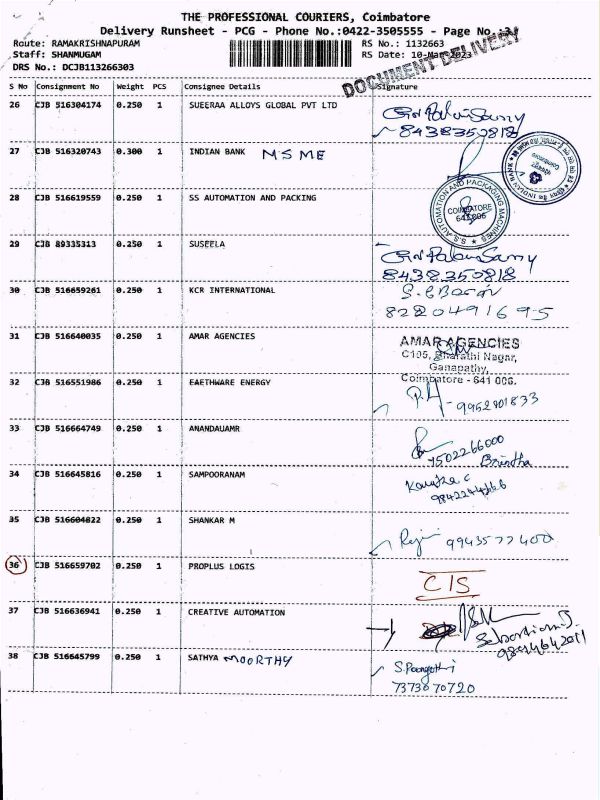 THE PROFESSIONAL COURIERS, Coimbatore
Delivery Runsheet - PCG - Phone No.:0422-3505555 - Page No. 3
Route: RAMAKRISHNAPURAM RS No.: 1132663
Staff: SHANMUGAM RS Date: 10-Mar-2023
DRS No.: DCJB113266303
DOCUMENT DELIVERY
S No Consignment No Weight PCS Consignee Details Signature
26 CJB 516304174 0.250 1 SUEERAA ALLOYS GLOBAL PVT LTD
8438350818
27 CJB 516320743 0.300 1 INDIAN BANK MSME
INDIAN BANK
28 CJB 516619559 0.250 1 SS AUTOMATION AND PACKING
S.S. AUTOMATION AND PACKAGING MACHINES
COIMBATORE
641 006
29 CJB 89335313 0.250 1 SUSEELA
8438350818
30 CJB 516659261 0.250 1 KCR INTERNATIONAL
8220491695
31 CJB 516640035 0.250 1 AMAR AGENCIES AMAR AGENCIES
C105, Bharathi Nagar,
Ganapathy,
Coimbatore - 641 006.
32 CJB 516551986 0.250 1 EAETHWARE ENERGY
9952901833
33 CJB 516664749 0.250 1 ANANDAUAMR
9502266000
Brindha
34 CJB 516645816 0.250 1 SAMPOORANAM
35 CJB 516604822 0.250 1 SHANKAR M
9943577400
36 CJB 516659702 0.250 1 PROPLUS LOGIS C/S
37 CJB 516636941 0.250 1 CREATIVE AUTOMATION
38 CJB 516645799 0.250 1 SATHYA MOORTHY
7373070720